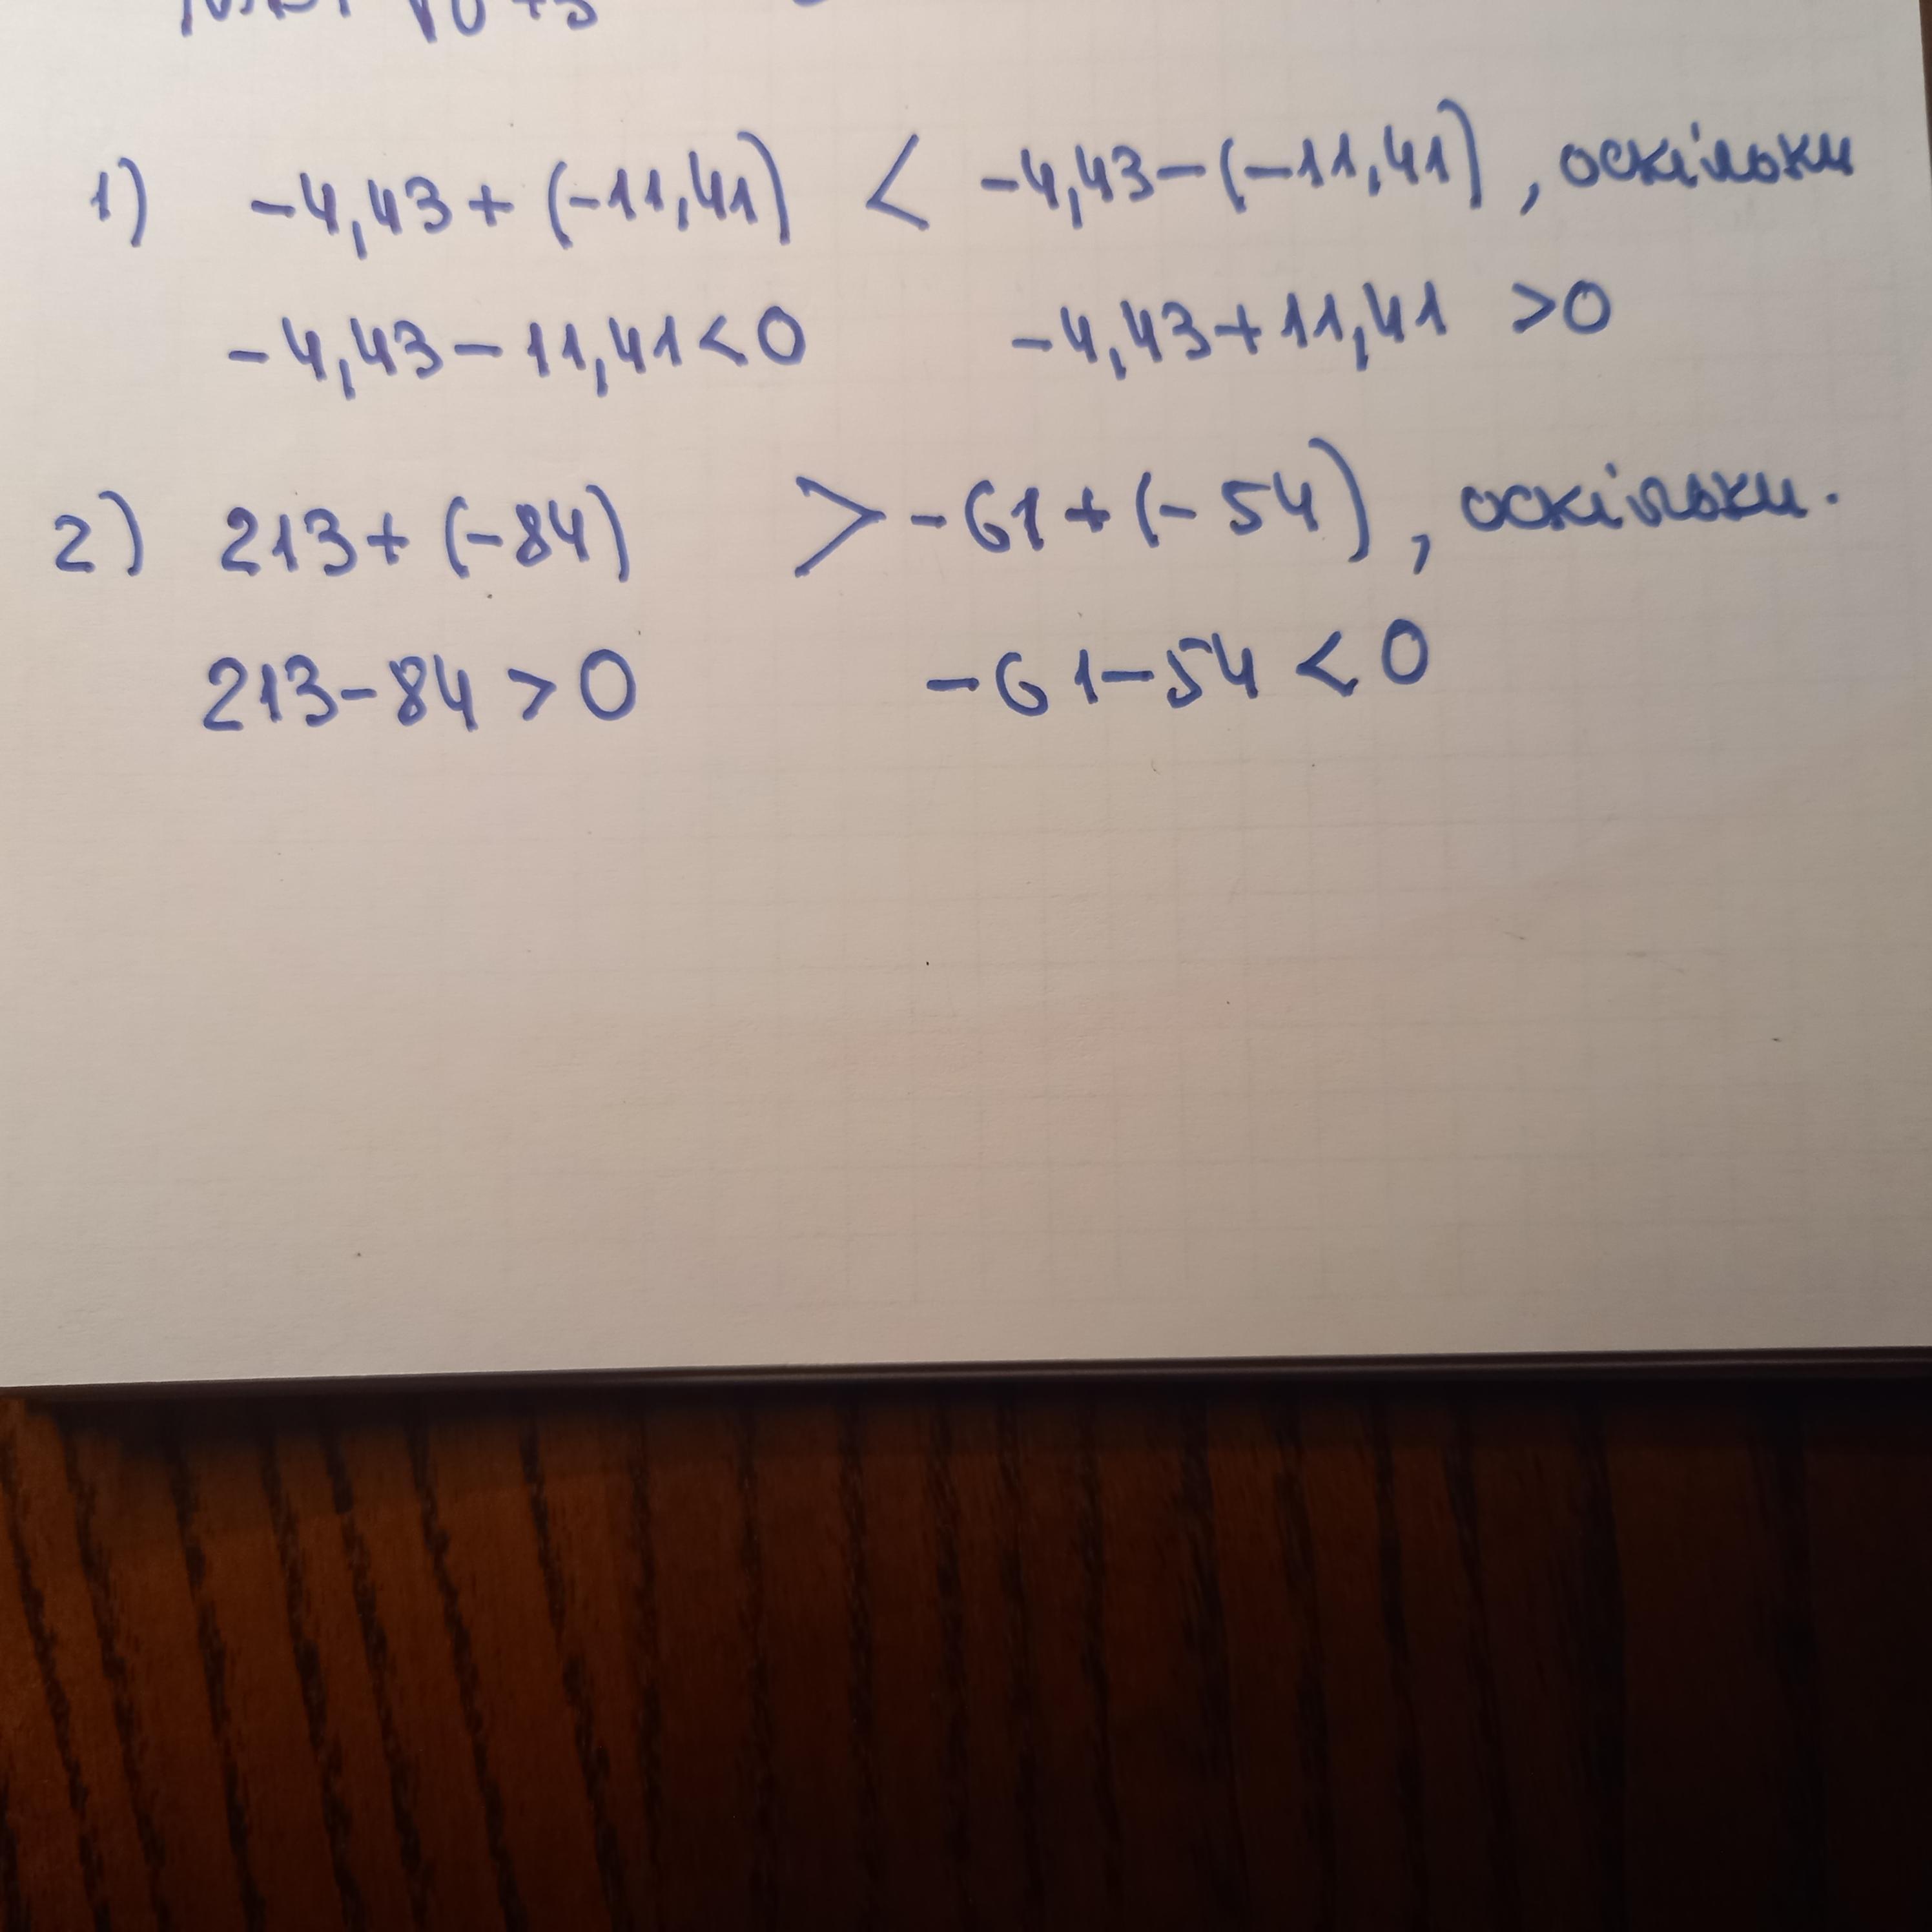 1) -4,43 + (-11,41) < -4,43 - (-11,41), оскільки
-4,43 - 11,41 < 0 -4,43 + 11,41 > 0
2) 213 + (-84) > -61 + (-54), оскільки.
213 - 84 > 0 -61 - 54 < 0